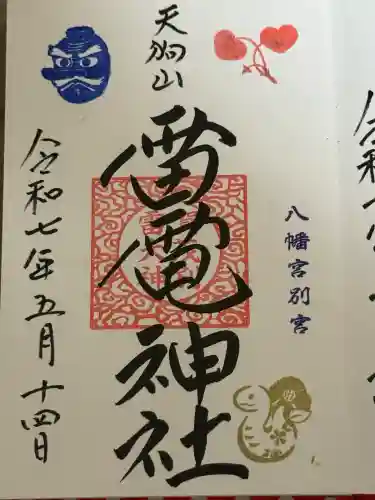 天狗山
雷電神社
八幡宮別宮
令和七年五月十四日